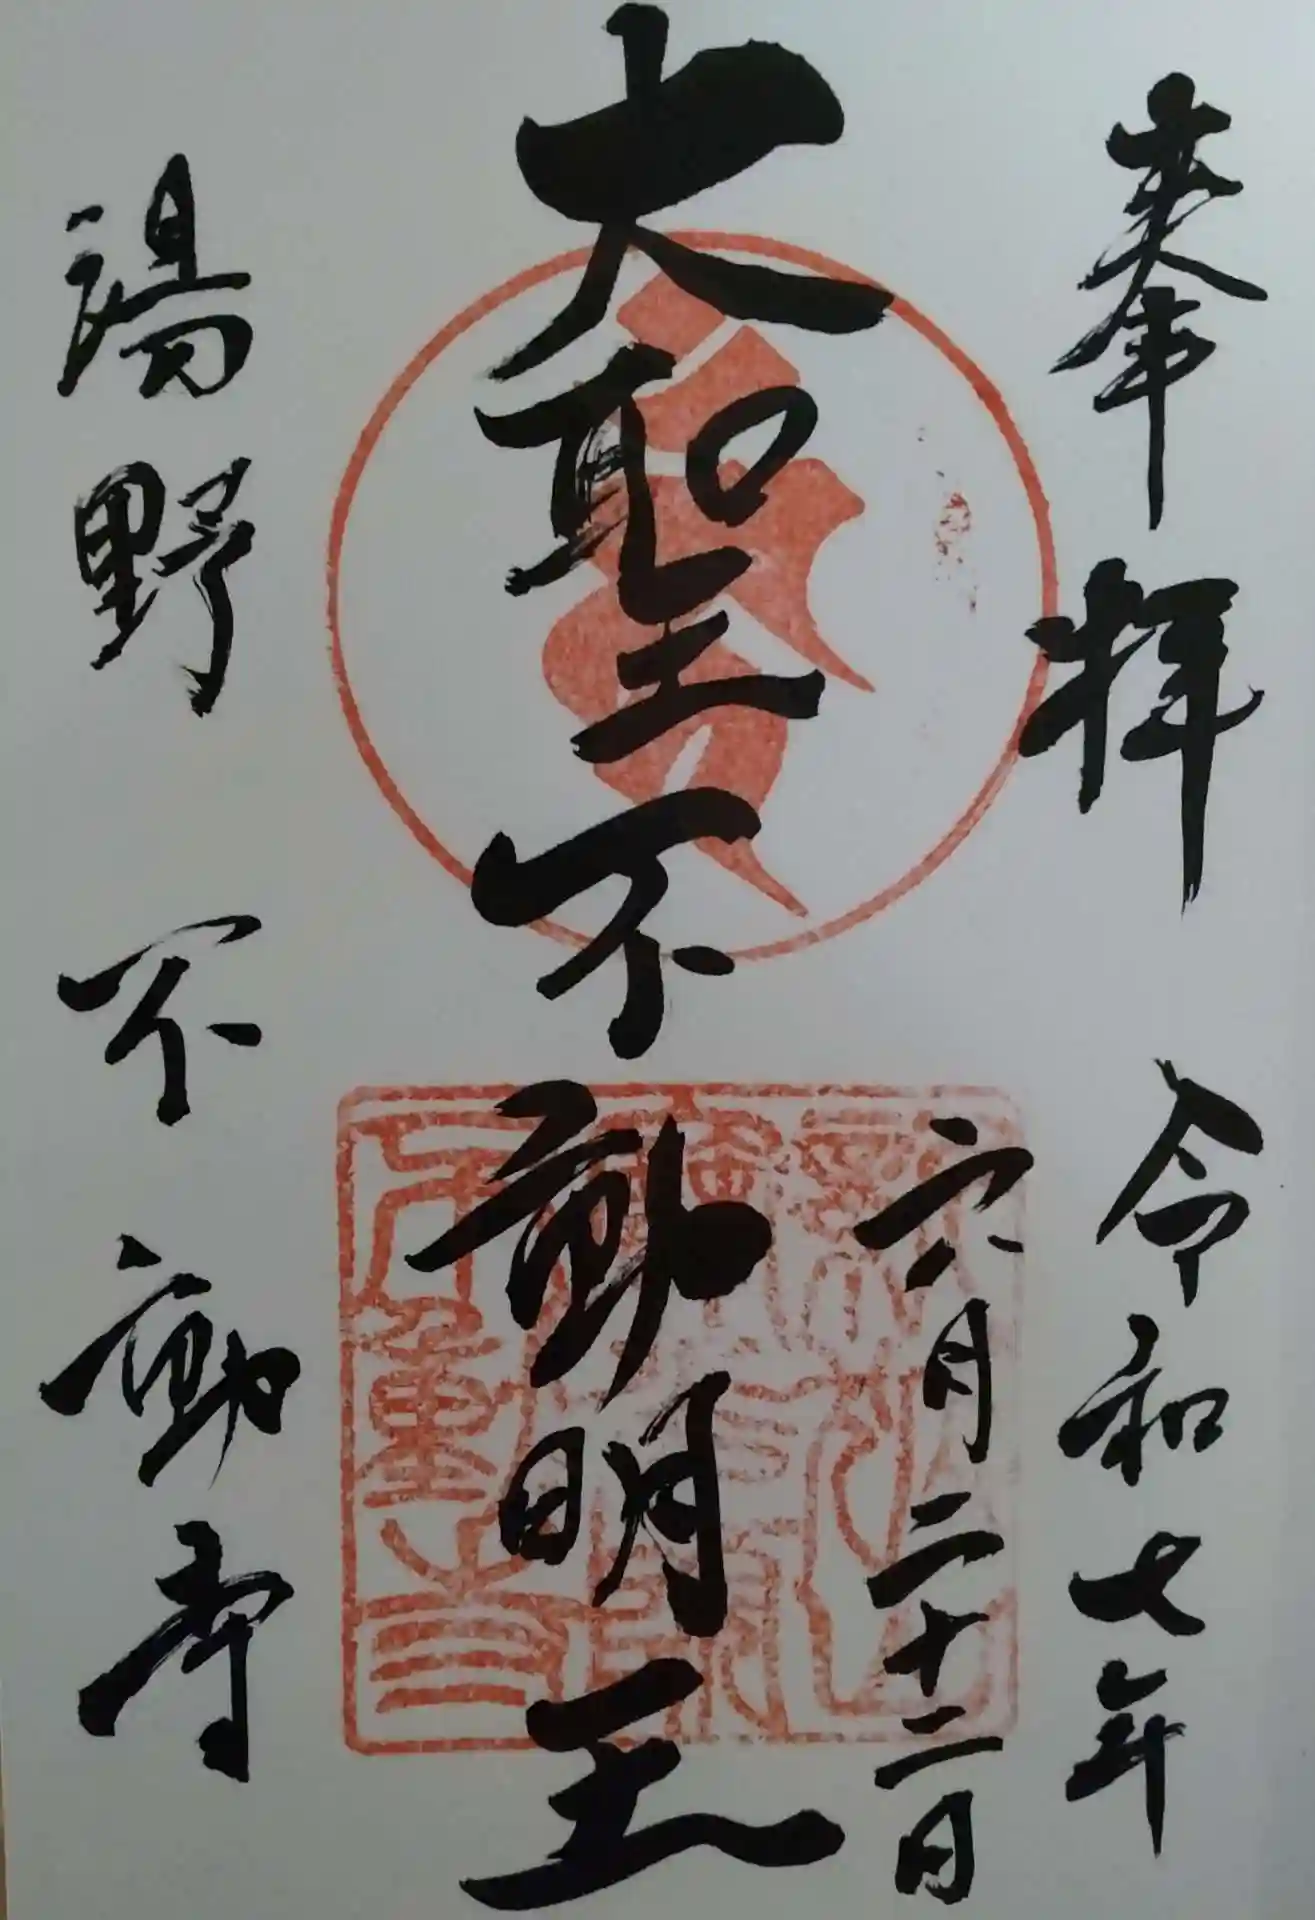 奉拝 令和七年
六月二十二日
大聖不動明王
湯野 不動寺